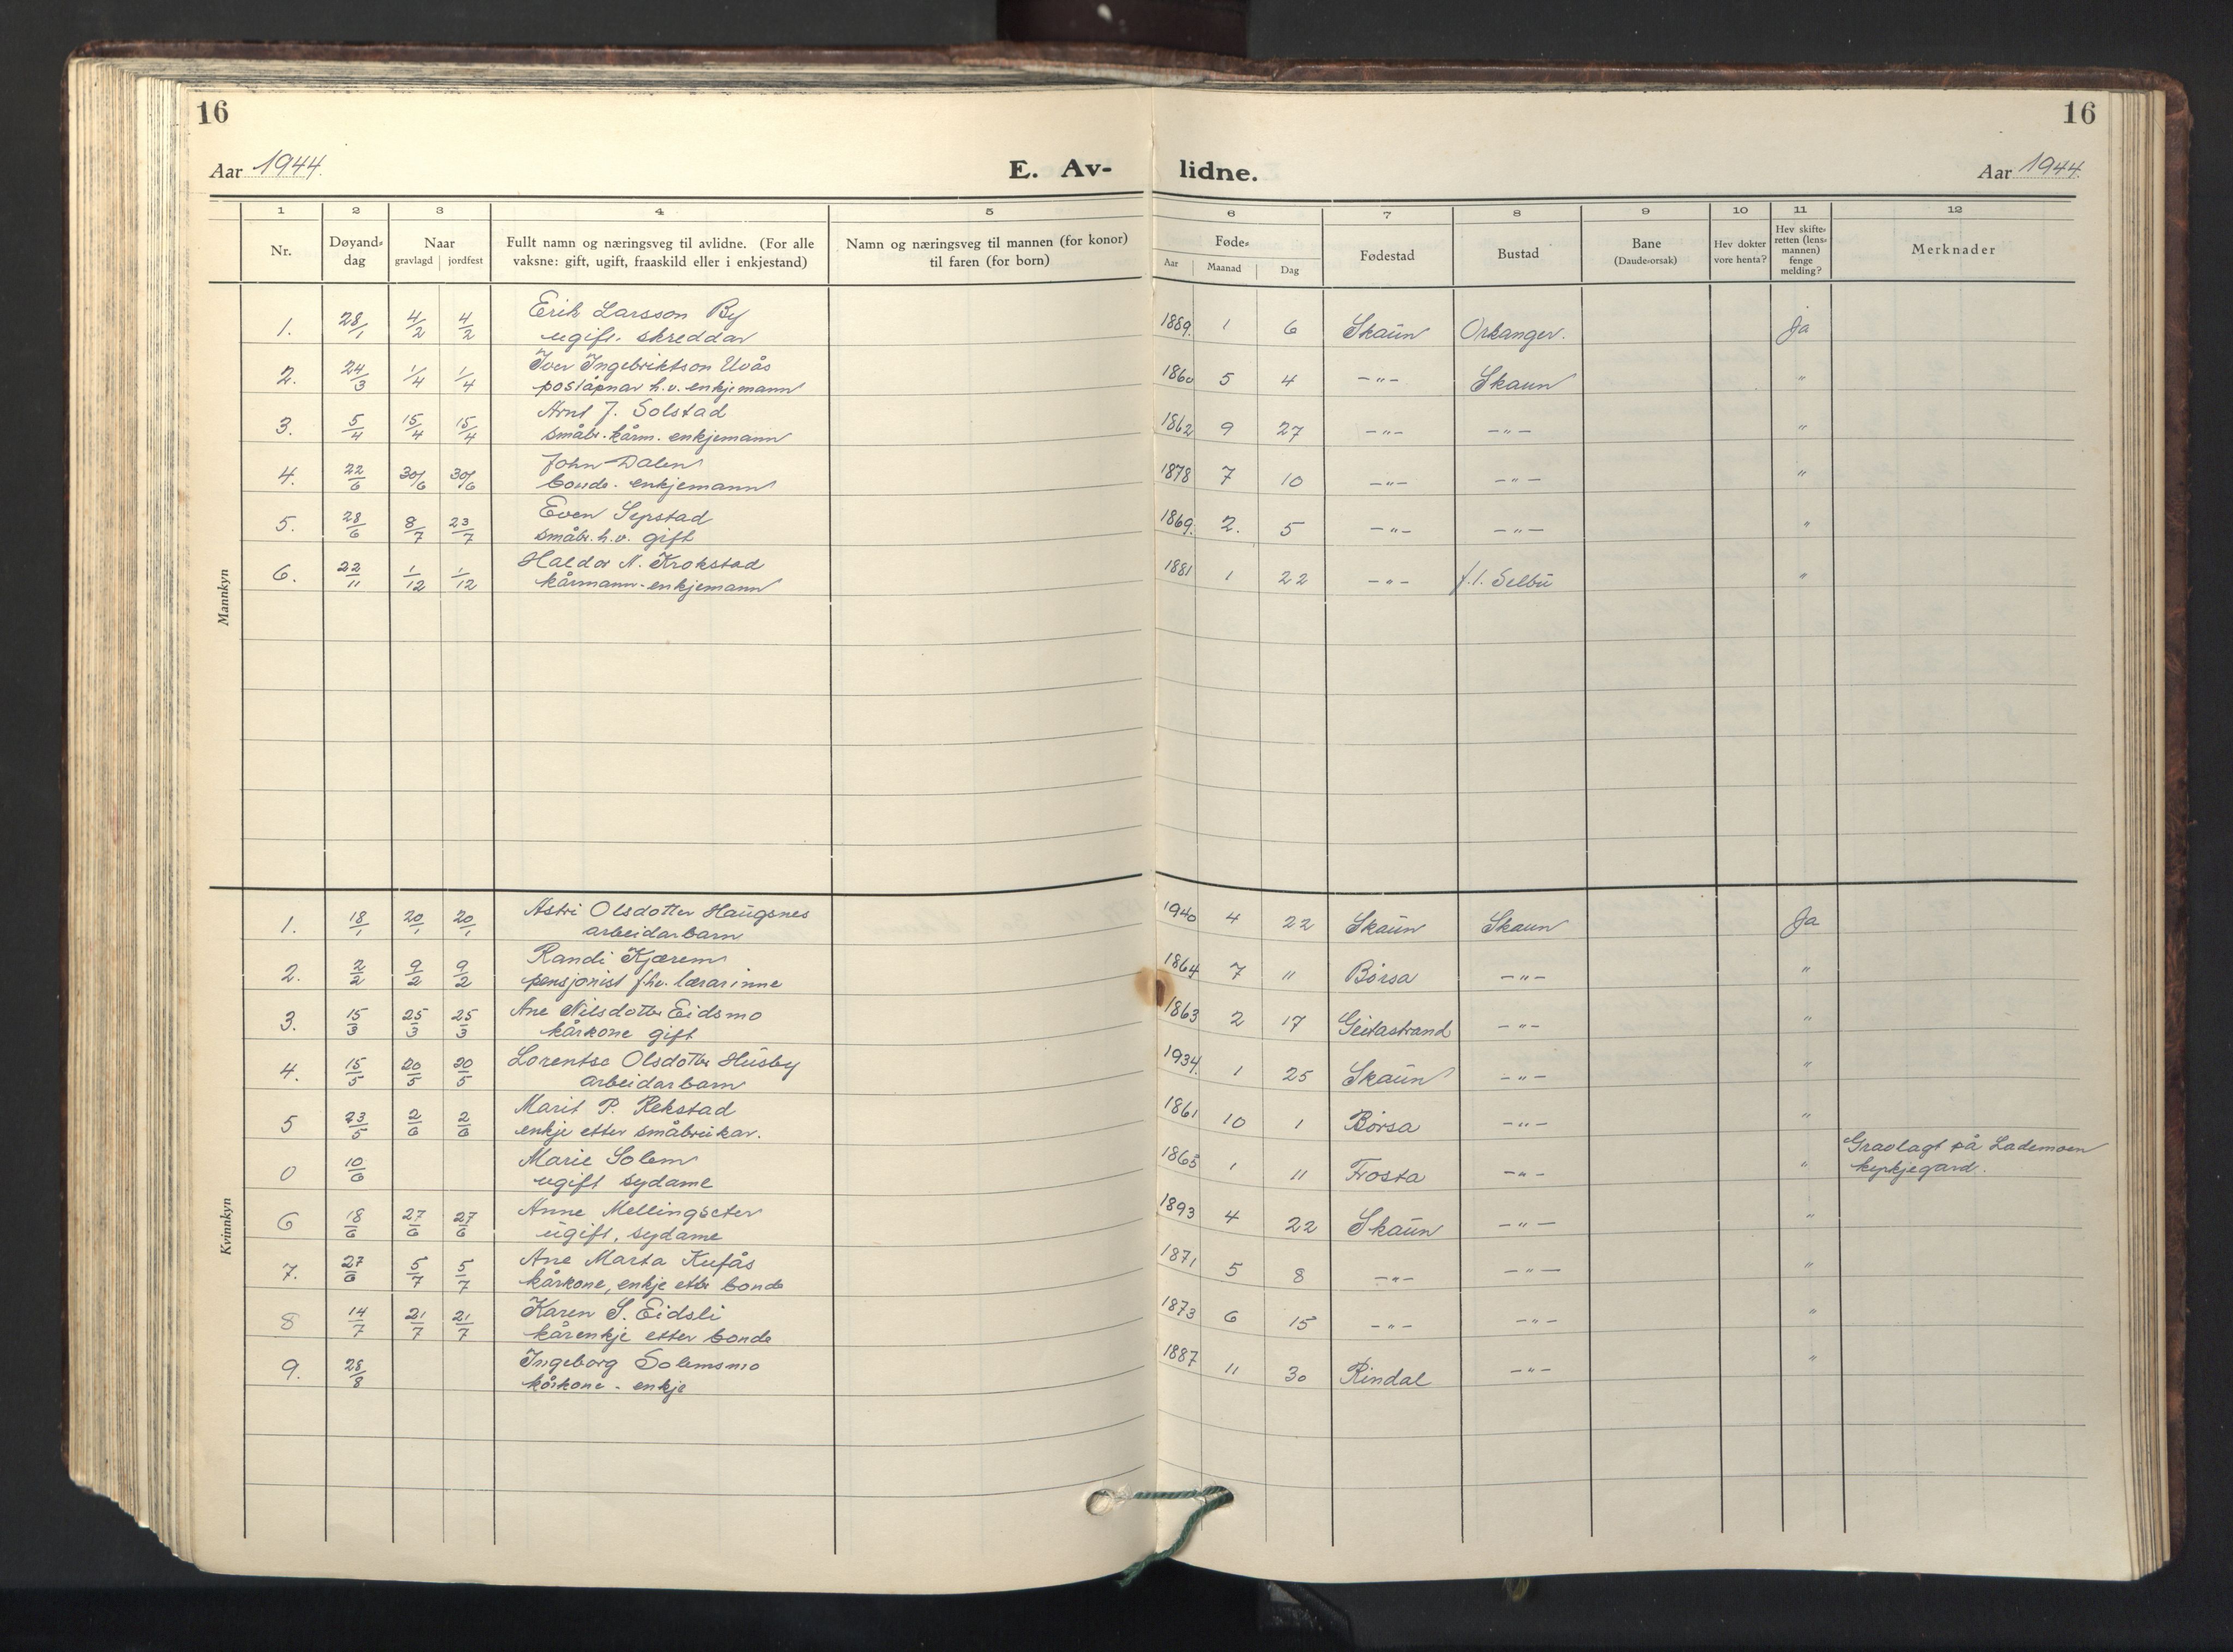 16
16
Aar 1944.
E. Av-
lidne.
Aar 1944.
1 2 3 4 5 6 7 8 9 10 11 12
Nr.
Døyand-
dag
Naar
gravlagd jordfest
Fullt namn og næringsveg til avlidne. (For alle
vaksne: gift, ugift, fraaskild eller i enkjestand)
Namn og næringsveg til mannen (for konor)
til faren (for born)
Føde-
Aar Maanad Dag
Fødestad
Bustad
Bane
(Daude-orsak)
Hev dokter
vore henta?
Hev skifte-
retten (lens-
mannen)
fenge
melding?
Merknader
Mannkyn
1. 28/1 4/2 4/2 Erik Larsson By 1889. 1 6 Skaun Orkanger. Ja
ugift. skreddar
2. 24/3 1/4 1/4 Iver Ingebriktson Uvås 1860 5 4 -"- Skaun "
poståpnar h.v. enkjemann
3. 5/4 15/4 15/4 Arnt J. Solstad 1862 9 27 -"- -"- "
småbr. kårm. enkjemann
4. 22/6 30/6 30/6 John Dalen 1878 7 10 -"- -"- "
bonde. enkjemann
5. 28/6 8/7 23/7 Even Sepstad 1869. 2. 5 -"- -"- "
småbr. h.v. gift
6. 22/11 1/12 1/12 Haldor N. Krokstad 1881 1 22 -"- f.t. Selbu "
kårmann - enkjemann
Kvinnkyn
1. 18/1 20/1 20/1 Astri Olsdotter Haugsnes 1940 4 22 Skaun Skaun Ja
arbeidarbarn
2. 2/2 9/2 9/2 Randi Kjærem 1864 7 11 Børsa -"- "
pensjonist fhv. lærarinne
3. 15/3 25/3 25/3 Ane Nilsdotter Eidsmo 1863 2 17 Geitastrand -"- "
kårkone gift
4. 15/5 20/5 20/5 Lorentse Olsdotter Husby 1934. 1 25 Skaun -"- "
arbeidarbarn
5 23/5 2/6 2/6 Marit P. Rekstad 1861 10 1 Børsa -"- "
enkje etter småbrukar.
0 10/6 Marie Solem 1865 1 11 Frosta -"- " Gravlagt på Lademoen
ugift sydame kyrkjegard.
6 18/6 27/6 27/6 Anne Mellingseter 1893 4 22 Skaun -"- "
ugift, sydame
7. 27/6 5/7 5/7 Ane Marta Kufås 1871 5 8 -"- -"- "
kårkone, enkje etter bonde
8 14/7 21/7 21/7 Karen S. Eidsli 1873 6 15 -"- -"- "
kårenkje etter bonde
9. 28/8 Ingeborg Solemsmo 1887 11 30 Rindal -"- "
kårkone - enkje